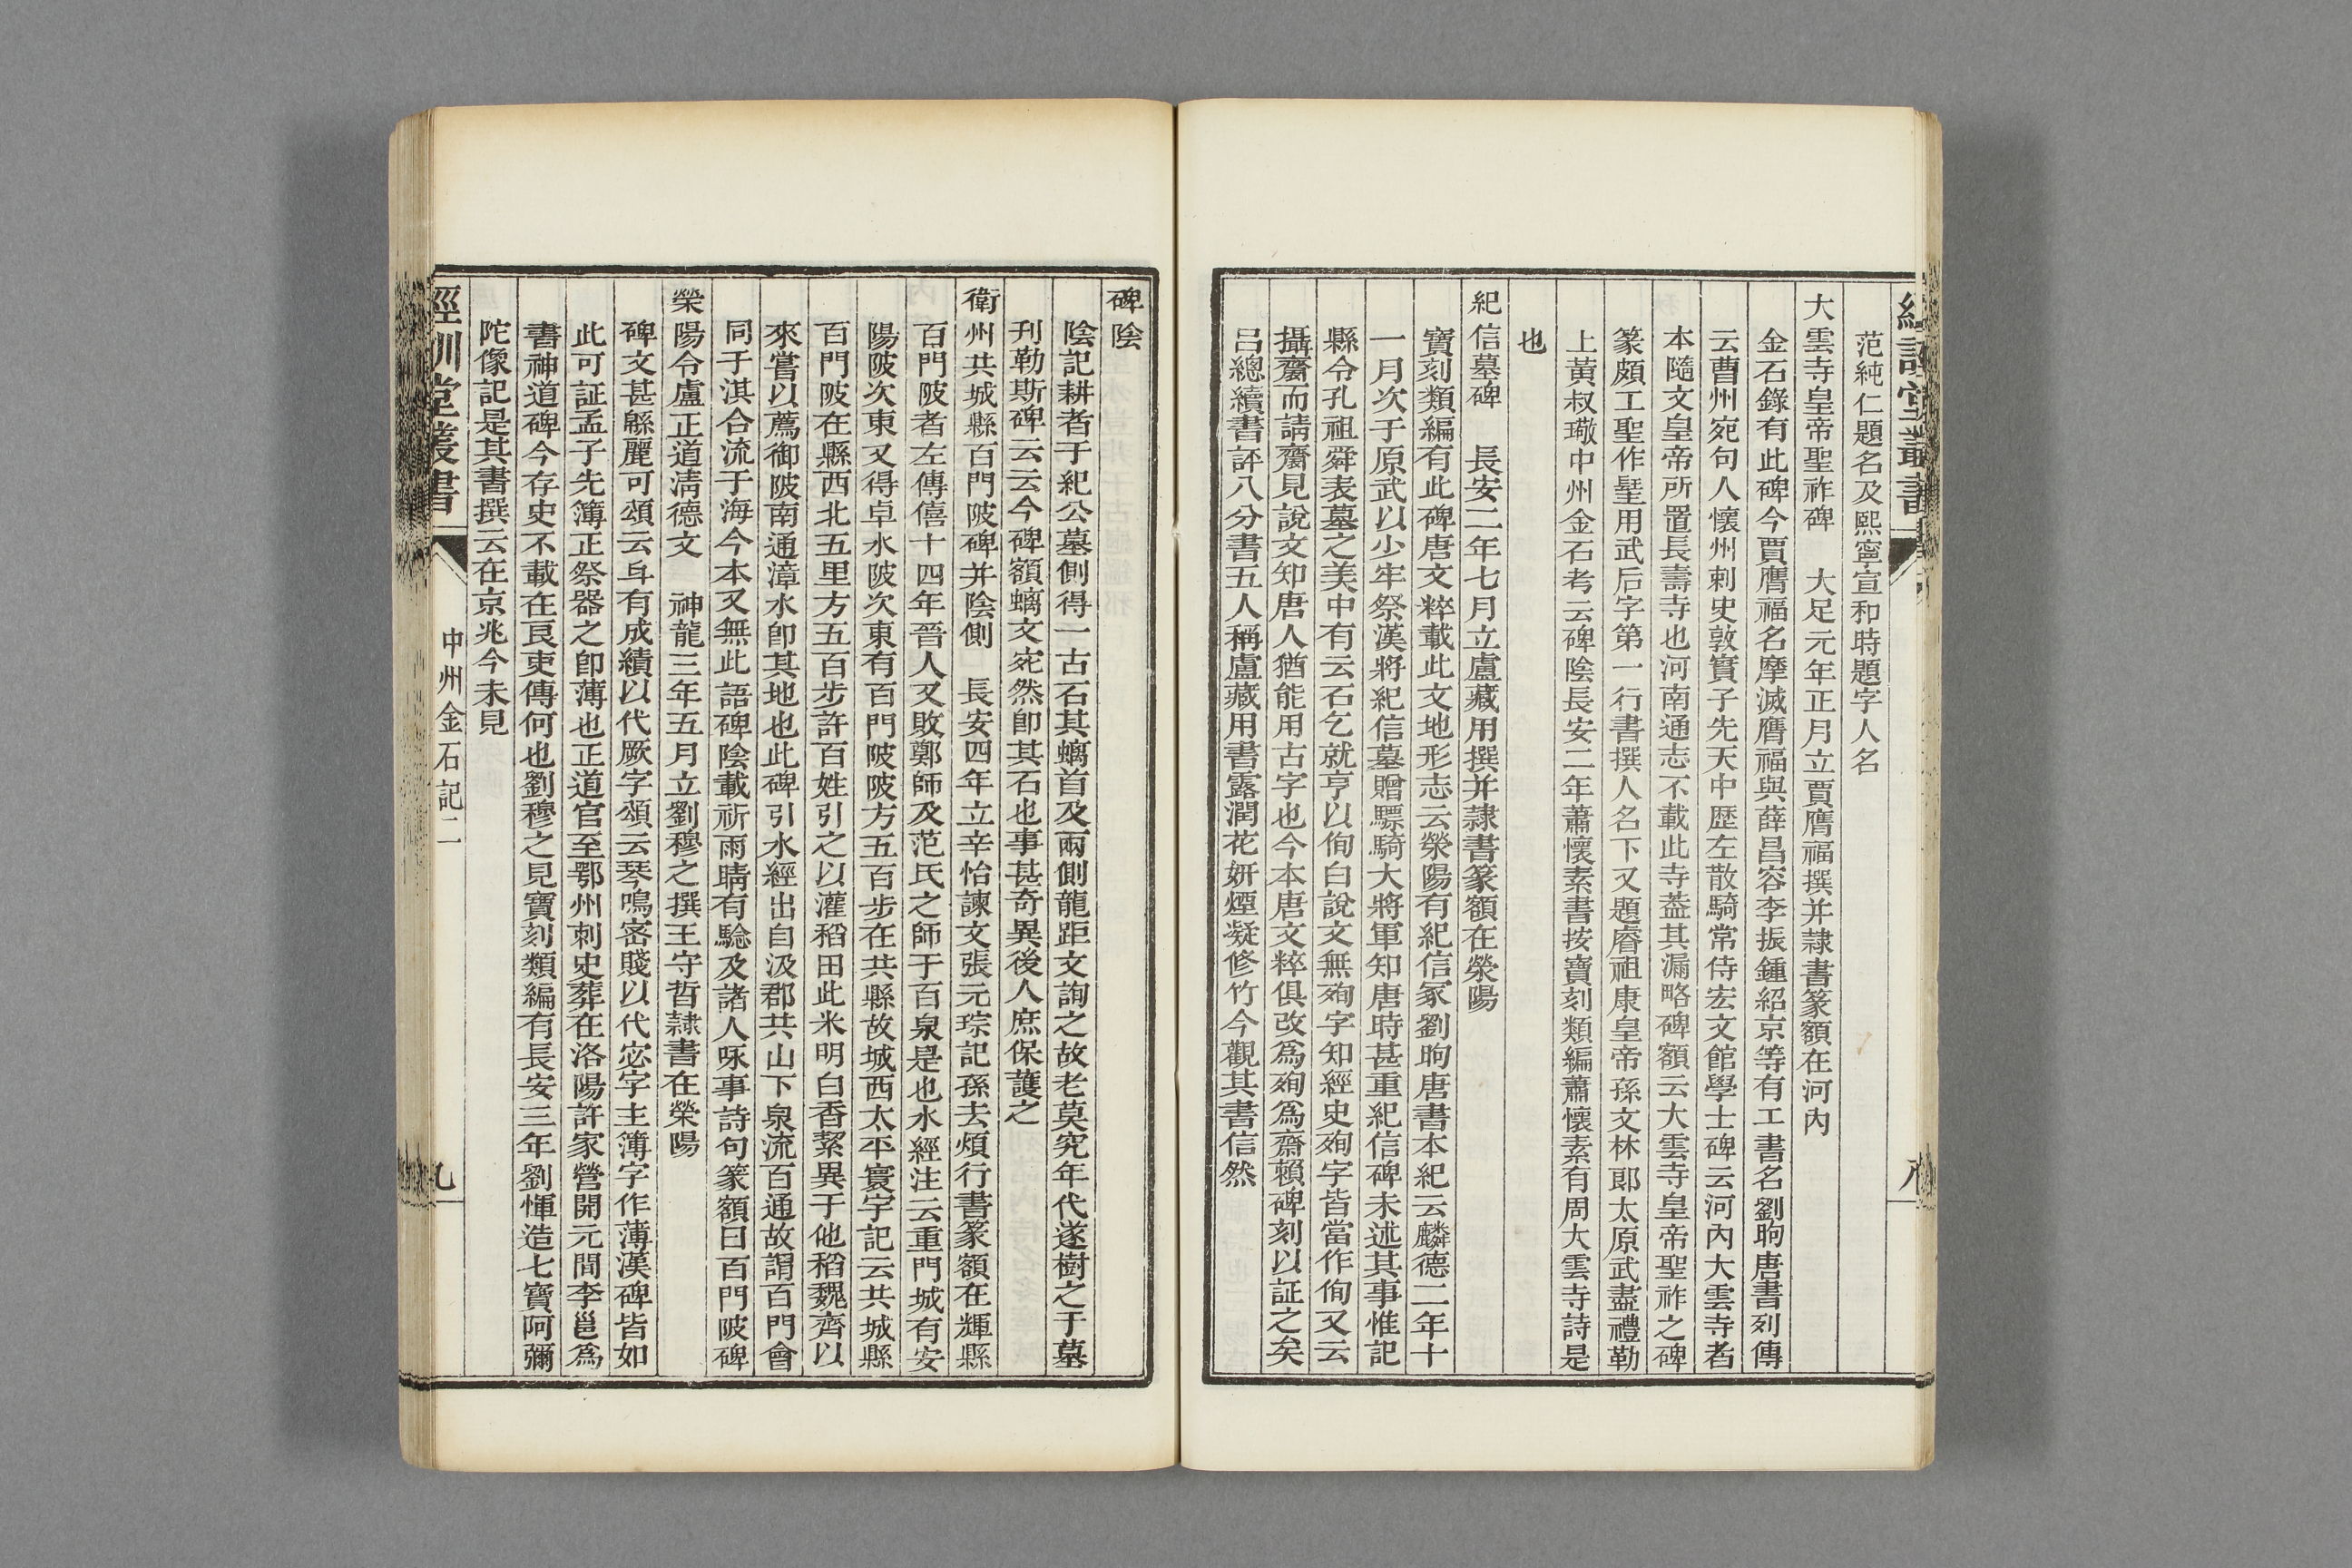 范純仁題名及熙寧宣和時題字人名
大雲寺皇帝聖祚碑　大足元年正月立賈膺福撰并隷書篆額在河內
金石錄有此碑今賈膺福名摩滅膺福與薛昌容李振鍾紹京等有工書名劉昫唐書列傳
云曹州宛句人懷州刺史敦實子先天中歴左散騎常侍宏文館學士碑云河內大雲寺者
本隨文皇帝所置長壽寺也河南通志不載此寺葢其漏略碑額云大雲寺皇帝聖祚之碑
篆頗工聖作𡔈用武后字第一行書撰人名下又題睿祖康皇帝孫文林郎太原武盡禮勒
上黃叔璥中州金石考云碑陰長安二年蕭懷素書按寶刻類編蕭懷素有周大雲寺詩是
也
紀信墓碑　長安二年七月立盧藏用撰并隷書篆額在滎陽
寶刻類編有此碑唐文粹載此文地形志云滎陽有紀信冢劉昫唐書本紀云麟德二年十
一月次于原武以少牢祭漢將紀信墓贈驃騎大將軍知唐時甚重紀信碑未述其事惟記
縣令孔祖舜表墓之美中有云石乞就亨以侚白說文無殉字知經史殉字皆當作侚又云
攝齌而請齌見說文知唐人猶能用古字也今本唐文粹俱改爲殉爲齋賴碑刻以証之矣
呂總續書評八分書五人稱盧藏用書露潤花妍煙凝修竹今觀其書信然
碑陰
陰記耕者于紀公墓側得一古石其螭首及兩側龍距文詢之故老莫究年代遂樹之于墓
刊勒斯碑云云今碑額螭文宛然卽其石也事甚奇異後人庶保護之
衛州共城縣百門陂碑并陰側　長安四年立辛怡諫文張元琮記孫去煩行書篆額在輝縣
百門陂者左傳僖十四年晉人又敗鄭師及范氏之師于百泉是也水經注云重門城有安
陽陂次東又得卓水陂次東有百門陂陂方五百步在共縣故城西太平寰宇記云共城縣
百門陂在縣西北五里方五百步許百姓引之以灌稻田此米明白香絜異于他稻魏齊以
來嘗以薦御陂南通漳水卽其地也此碑引水經出自汲郡共山下泉流百通故謂百門會
同于淇合流于海今本又無此語碑陰載祈雨晴有驗及諸人咏事詩句篆額曰百門陂碑
滎陽令盧正道清德文　神龍三年五月立劉穆之撰王守哲隷書在滎陽
碑文甚緜麗可頌云𠂣有成績以代厥字頌云琴鳴宻賤以代宓字主簿字作薄漢碑皆如
此可証孟子先簿正祭器之卽薄也正道官至鄂州刺史葬在洛陽許家營開元間李邕爲
書神道碑今存史不載在良吏傳何也劉穆之見寶刻類編有長安三年劉惲造七寶阿彌
陀像記是其書撰云在京兆今未見
經訓堂叢書
中州金石記二
九